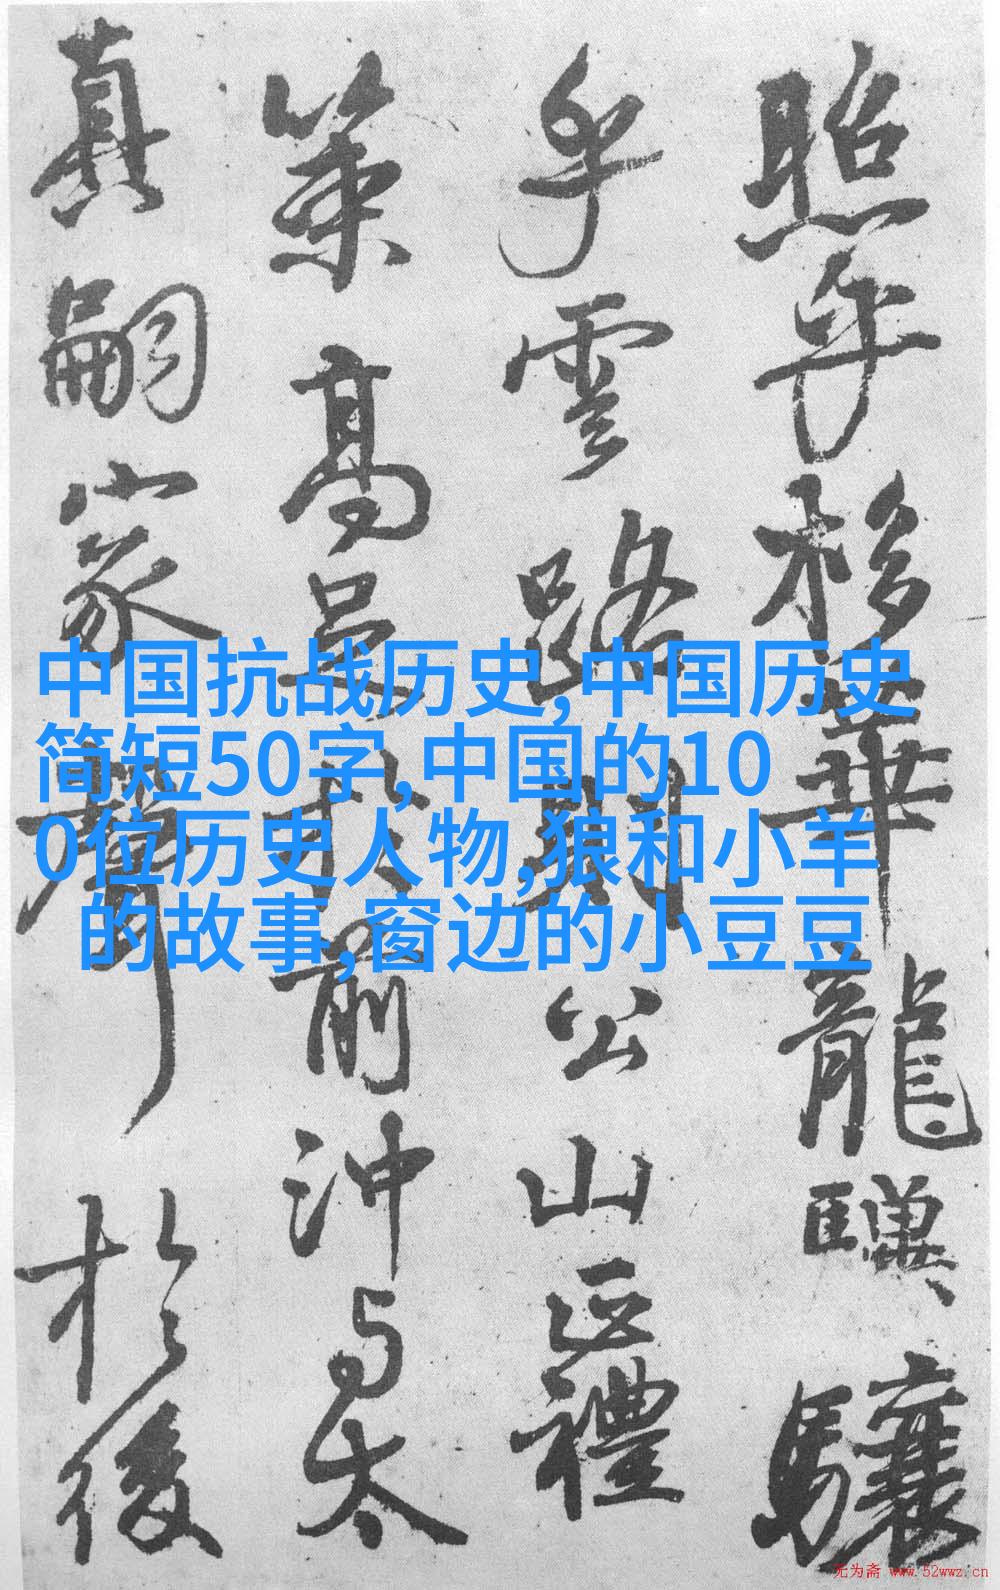 照華龍驥驤
乎雲路則公山正禮
策高足於前沖与太
真嗣家聲於後
中国抗战历史,中国历史
简短50字,中国的10
0位历史人物,狼和小羊
的故事,窗边的小豆豆
无为斋 www.52wwz.cn